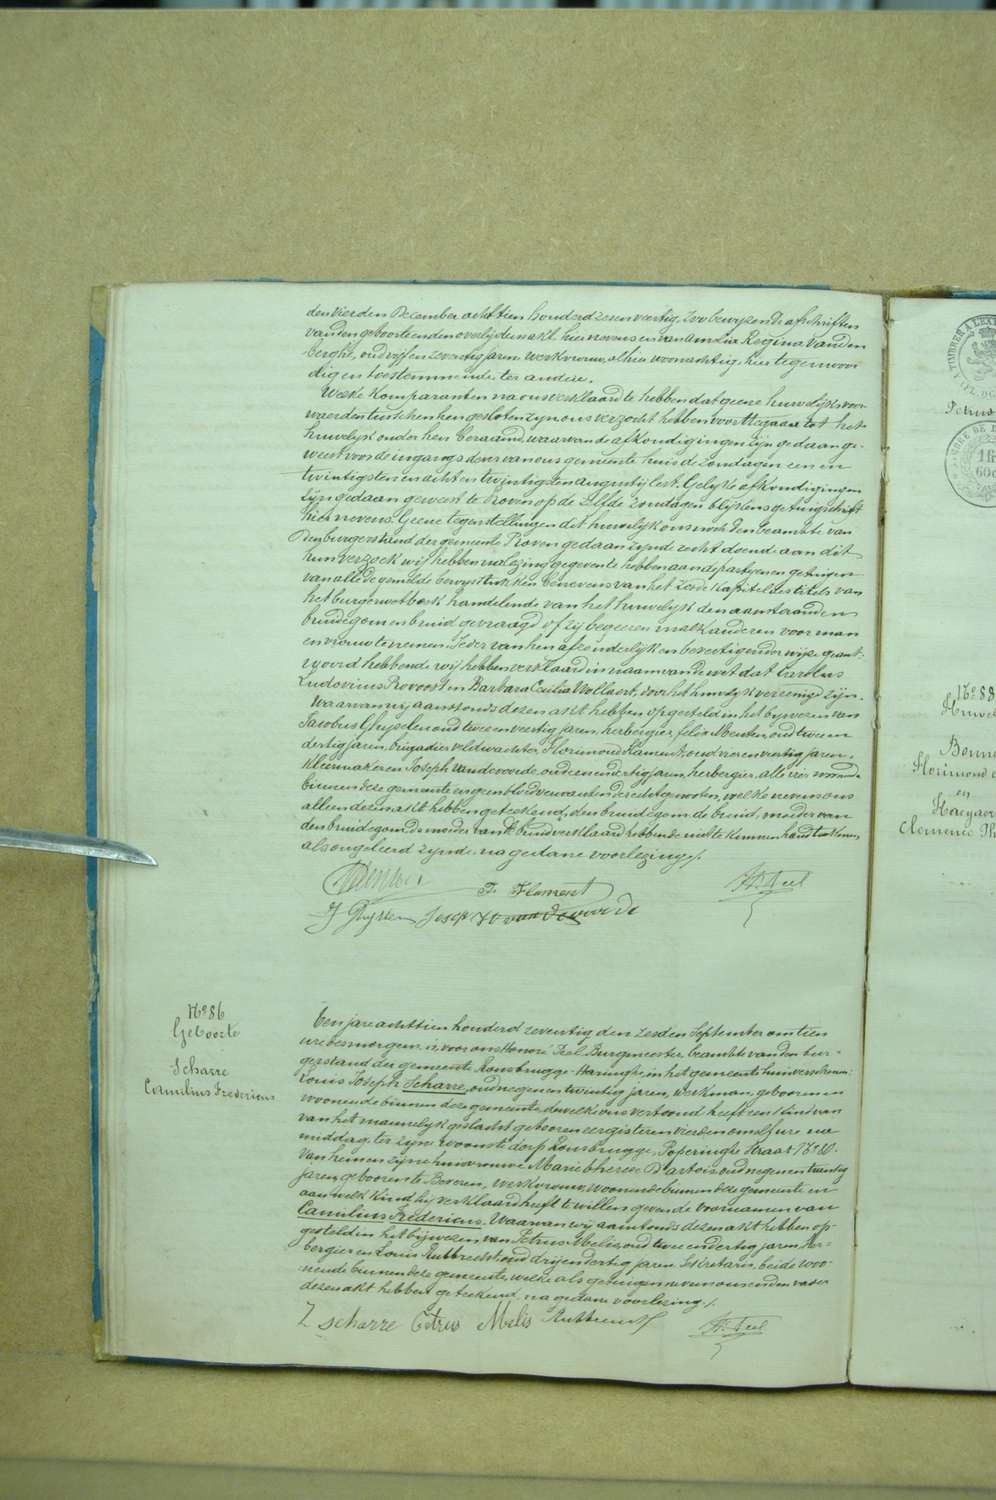 den vierden December achttien honderd zevenveertig, zoo bewijzen de afschriften
van den geboorte en den overlijdens akt hiernevens en van Amelia Regina Vanden
berghe, oud vijf en zeventig jaren, werkvrouw, alhier woonachtig, hier tegenwoor
dig en toestemmende, ter andere.
Welke komparanten na ons verklaard te hebben dat geene huwelijksvoor
waerden tusschen hen gesloten zijn ons verzocht hebben voorttegaan tot het
huwelijk onder hen beraamd, waarvan de afkondigingen zijn gedaan ge-
weest voor de ingangsdeur van ons gemeente huis de zondagen een en
twintigsten en acht en twintigsten augusty lest. Gelyke afkondigingen
zijn gedaan geweest te Roven op de zelfde zondagen blijkens getuigschrift
hier nevens. Geene tegenstellingen dit huwelijk ons noch den beambte van
den burgerstand der gemeente Proven gedaan zijnde recht doende aan dit
hun verzoek wij hebben na lezing gegeven te hebben aan de partyen en getuigen
van alle de gemelde bewysstukken benevens van het zesde kapitel des titels van
het burgerwetboek handelende van het huwelijk den aanstaanden
bruidegom en bruid gevraagd of zij begeeren malkanderen voor man
en vrouw te nemen. Ieder van hen afzonderlijk en bevestigender wijze geant-
woord hebbende wij hebben verklaard in naam van de wet dat Carolus
Ludovicus Provoost en Barbara Cecilia Wollaert, door het huwelijk vereenigd zijn.
Waarvan wij aanstonds dezen akt hebben opgesteld in het bywezen van
Jacobus Ghyselen oud twee en veertig jaren, herbergier, felix Menten, oud twee en
dertig jaren, brigadier veldwachter, Florimond Flament, oud vier en veertig jaren,
kleermaker en Joseph vande voorde, oud een en dertig jaren, herbergier, alle vier woonende
binnen deze gemeente en geen bloedverwanten der echtgenooten, welke nevens ons
alleen dezen akt hebben geteekend, den bruidegom de bruid, moeder van
den bruidegom de moeder van de bruid verklaard hebbende niet te kunnen handteekenen
als ongeleerd zijnde, na gedane voorlezing /.
F. Flament
Ht Peel
J Ghyselen Joseph Vande voorde
N° 86
Geboorte
Scharre
Camilius Fredericus
Een jare achttien honderd zeventig den zesden September om tien
ure des morgens, is, voor ons Honoré Peel Burgmeester, beambte van den bur-
gerstand der gemeente Rousbrugge-Haringhe, in het gemeentehuis verschenen:
Louis Joseph Scharre, oud negen en twintig jaren, werkman, geboren en
woonende binnen deze gemeente, dewelke ons vertoond heeft een kind van
van het mannelijk geslacht, geboren eergisteren vierden om elf ure na
middag, ter zijne woonste dorp Rousbrugge, Poperinghe Straat N° 60.
Van hem en zijne huisvrouwe Marie therese D'artois, oud negen en twintig
jaren, geboren te Beveren, werkvrouw, woonende binnen deze gemeente en
aan welk kind hij verklaard heeft te willen geven de voornamen van
Camilius Fredericus. Waarvan wij aanstonds dezen akt hebben op-
gesteld in het bijwezen van Petrus Melis, oud twee en dertig jaren, her-
bergier en Louis Rubbrecht, oud drij en dertig jaren, Sekretaris, beide woo-
nende binnen deze gemeente, welke als getuigen nevens ons en den vader
dezen akt hebben geteekend, na gedane voorlezing /.
L scharre Petrus Melis Rubbrecht
Ht Peel
Petrus
N° 88
Huwel
Bonne
Florimond
en
Haeyaer
Clemence Th